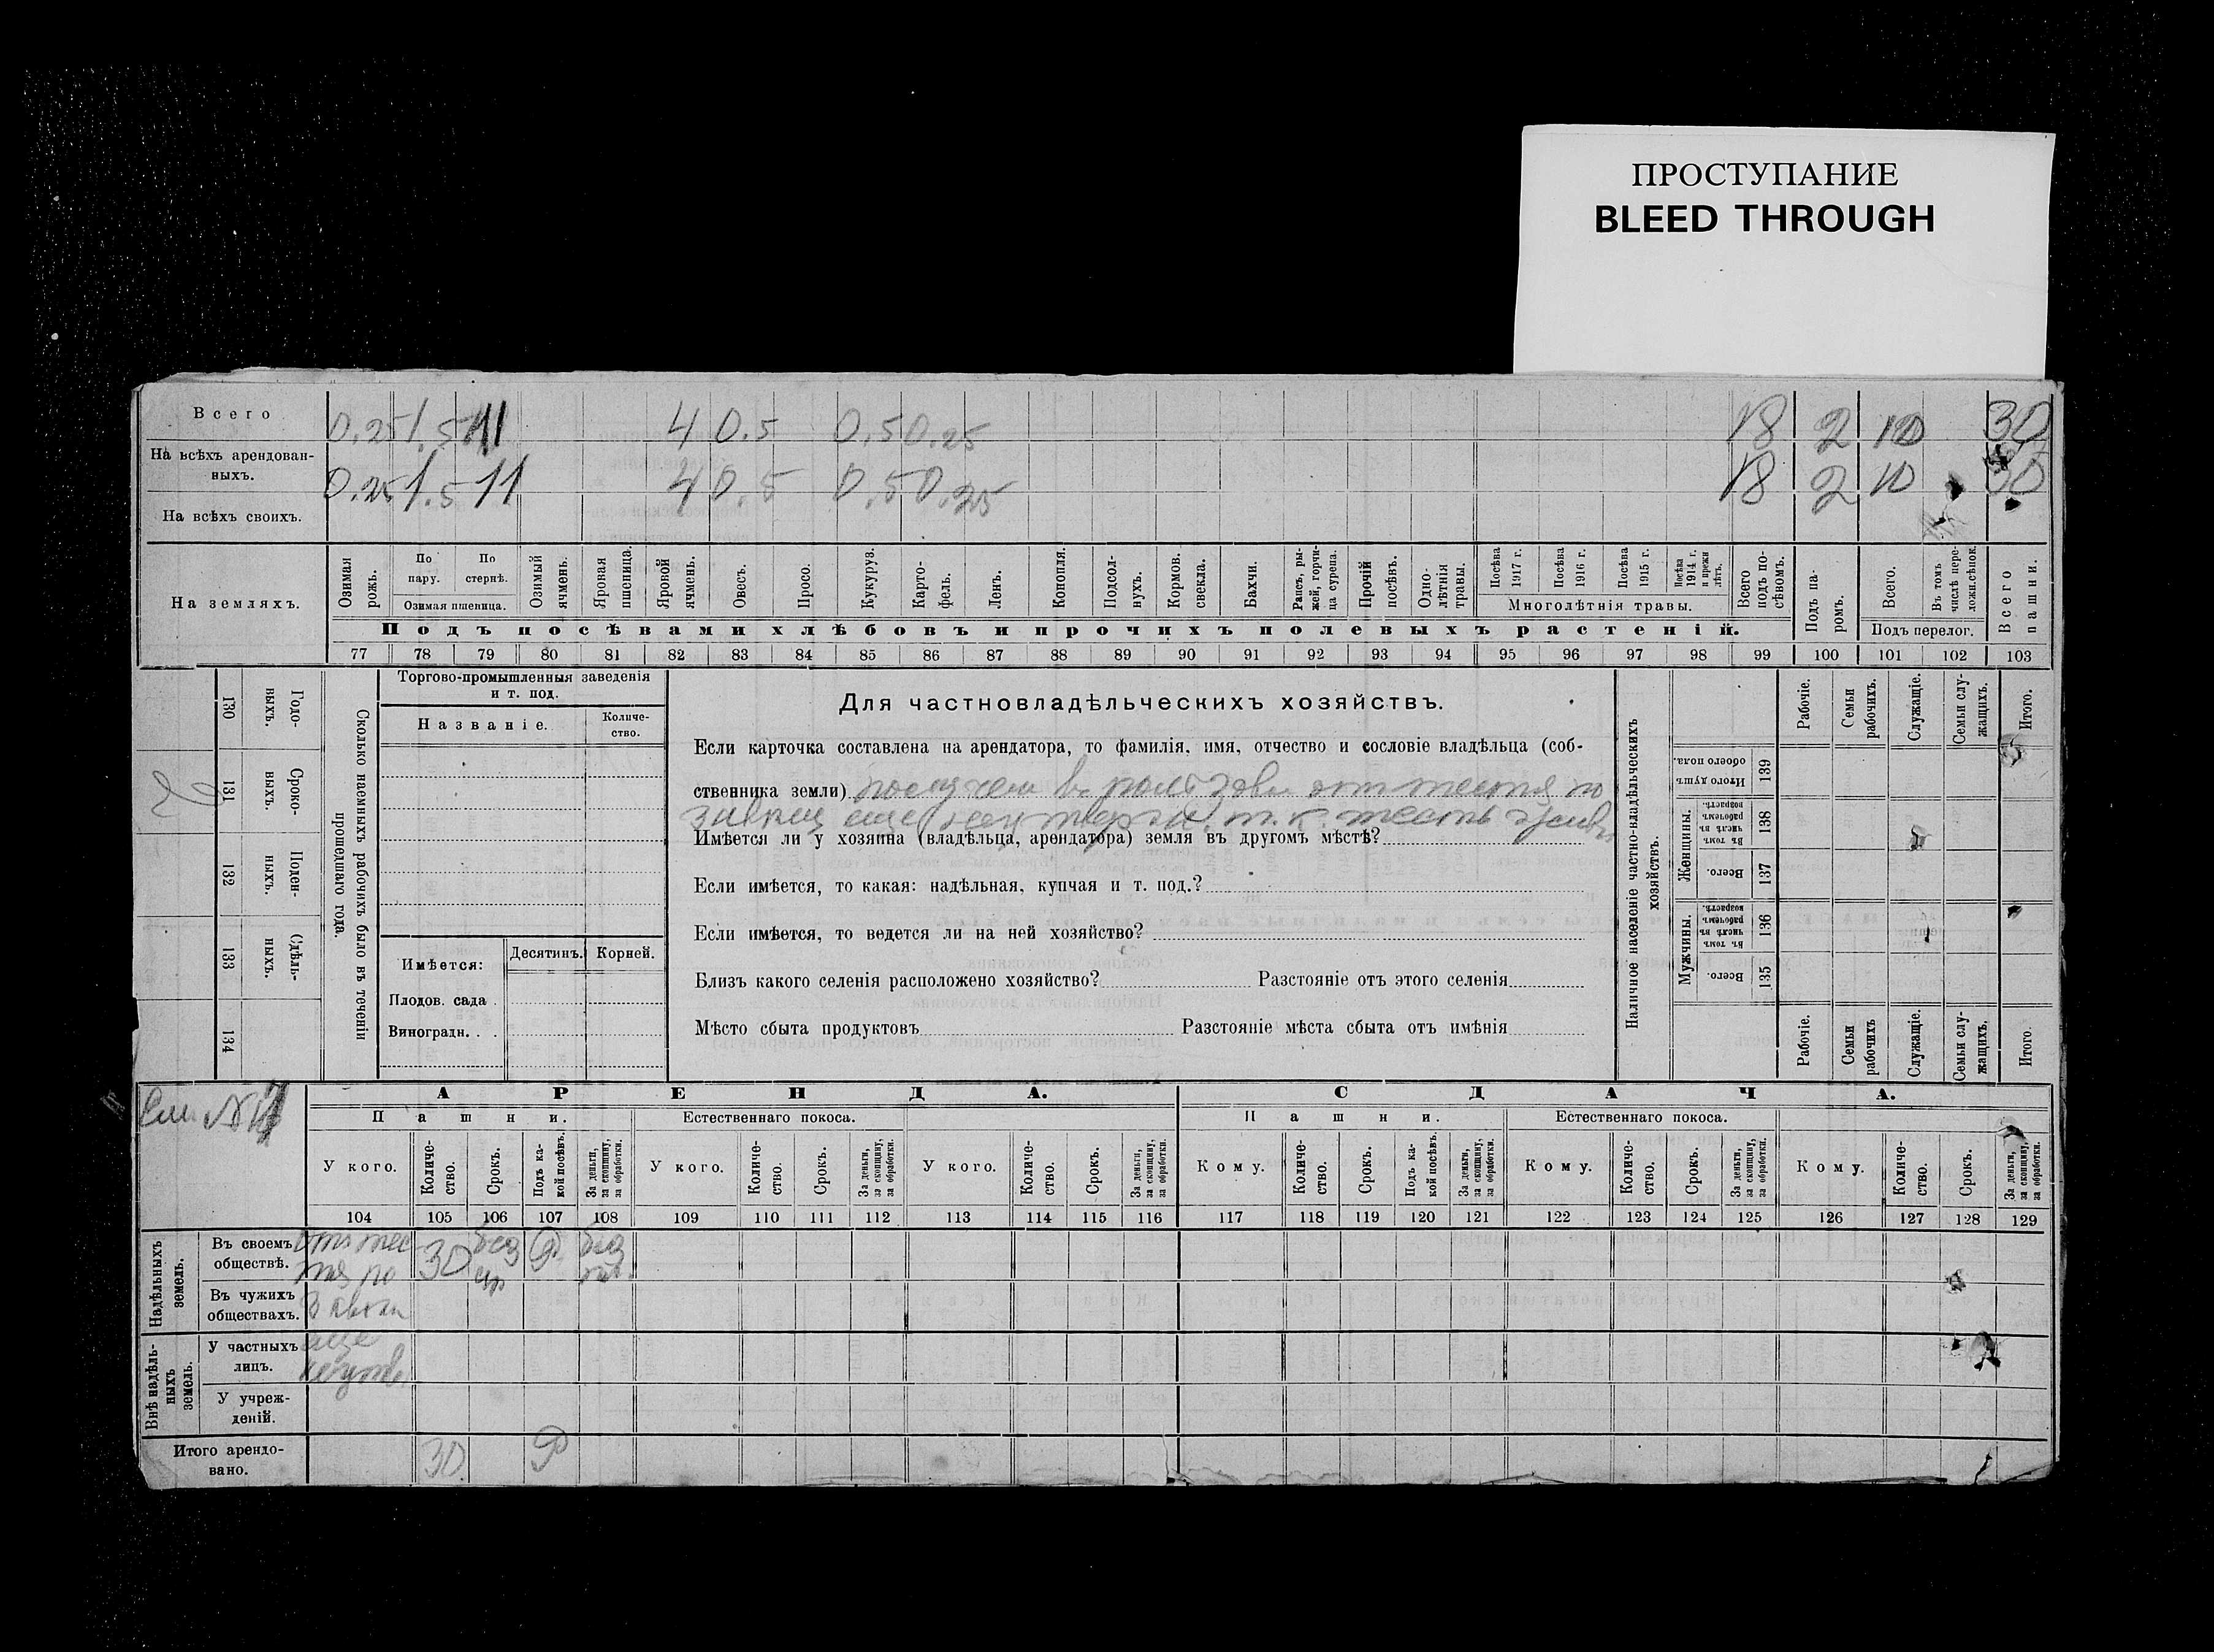 ПРОСТУПАНИЕ
BLEED THROUGH
Всего 0.25 1.5 11 4 0.5 0.5 0.25 18 2 10 30
На всѣхъ арендован-
ныхъ. 0.25 1.5 11 4 0.5 0.5 0.25 18 2 10 30
На всѣхъ своихъ.
На земляхъ.
Озимая рожь.
По пару.
По стернѣ.
Озимая пшеница.
Озимый ячмень.
Яровая пшеница.
Яровой ячмень.
Овесъ.
Просо.
Кукуруз.
Карто-
фель.
Ленъ.
Конопля.
Подсол-
нухъ.
Кормов. свекла.
Бахчи.
Рапсъ, ры-
жей, горчи-
ца сурепа.
Прочій посѣвъ.
Одно-
лѣтнія травы.
Посѣва 1917 г.
Посѣва 1916 г.
Посѣва 1915 г.
Посѣва 1914 г. и прежн лѣтъ.
Многолѣтнія травы.
Всего подъ по-
сѣвомъ.
Подъ па-
ромъ.
Всего.
Въ томъ числѣ пере-
ложн.сѣнок.
Подъ перелог.
Всего пашни.
Подъ посѣвами хлѣбовъ и прочихъ полевыхъ растеній.
77 78 79 80 81 82 83 84 85 86 87 88 89 90 91 92 93 94 95 96 97 98 99 100 101 102 103
130 Годо-
выхъ.
131 Сроко-
выхъ.
132 Поден-
ныхъ.
133 Сдѣль-
ныхъ.
134
Сколько наемныхъ рабочихъ было въ теченіи
прошедшаго года.
Торгово-промышленныя заведенія
и т. под.
Названіе.
Количе-
ство.
Имѣется:
Десятинъ.
Корней.
Плодов. сада .
Виноградн. . .
Для частновладѣльческихъ хозяйствъ.
Если карточка составлена на арендатора, то фамилія, имя, отчество и сословіе владѣльца (соб-
ственника земли) от тестя по
еще т. к. тесть
Имѣется ли у хозяина (владѣльца, арендатора) земля въ другомъ мѣстѣ?
Если имѣется, то какая: надѣльная, купчая и т. под.?
Если имѣется, то ведется ли на ней хозяйство?
Близъ какого селенія расположено хозяйство? Разстояніе отъ этого селенія
Мѣсто сбыта продуктовъ Разстояніе мѣста сбыта отъ имѣнія
Наличное населеніе частно-владѣльческихъ
хозяйствъ.
Рабочіе.
Семьи рабочихъ.
Служащіе.
Семьи слу-
жащихъ.
Итого.
Итого душъ обоего пола. 139
Женщины.
Въ томъ числѣ въ рабочемъ возрастѣ. 138
Всего. 137
Мужчины.
Въ томъ числѣ въ рабочемъ возрастѣ. 136
Всего. 135
Рабочіе.
Семьи рабочихъ
Служащіе.
Семьи слу-
жащихъ.
Итого.
АРЕНДА.
СДАЧА.
Пашни.
Естественнаго покоса.
Пашни.
Естественнаго покоса.
У кого.
Количе-
ство.
Срокъ.
Подъ ка-
кой посѣвъ.
За деньги, за скопщину, за обработки.
У кого.
Количе-
ство.
Срокъ.
За деньги, за скопщину, за обработки.
У кого.
Количе-
ство.
Срокъ.
За деньги, за скопщину, за обработки.
Кому.
Количе-
ство.
Срокъ.
Подъ ка-
кой посѣвъ.
За деньги, за скопщину, за обработки.
Кому.
Количе-
ство.
Срокъ.
За деньги, за скопщину, за обработки.
Кому.
Количе-
ство.
Срокъ.
За деньги, за скопщину, за обработки.
104 105 106 107 108 109 110 111 112 113 114 115 116 117 118 119 120 121 122 123 124 125 126 127 128 129
Надѣльныхъ земель.
Въ своемъ обществѣ. 30
Въ чужихъ обществахъ.
Внѣ надѣль-
ныхъ земель.
У частныхъ лицъ. еще
У учреж-
деній.
Итого арендо-
вано. 30